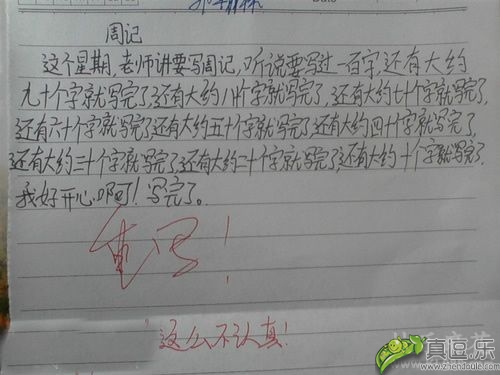 周记
这个星期,老师讲要写周记,听说要写过一百字,还有大约
九十个字就写完了,还有大约八十个字就写完了,还有大约七十个字就写完了,
还有六十个字就写完了还有大约五十个字就写完了,还有大约四十个字就写完了,
还有大约三十个字就写完了,还有大约二十个字就写完了,还有大约十个字就写完了.
我好开心啊!写完了。
重写!
这么不认真!
真逗乐
www.zhendoule.com